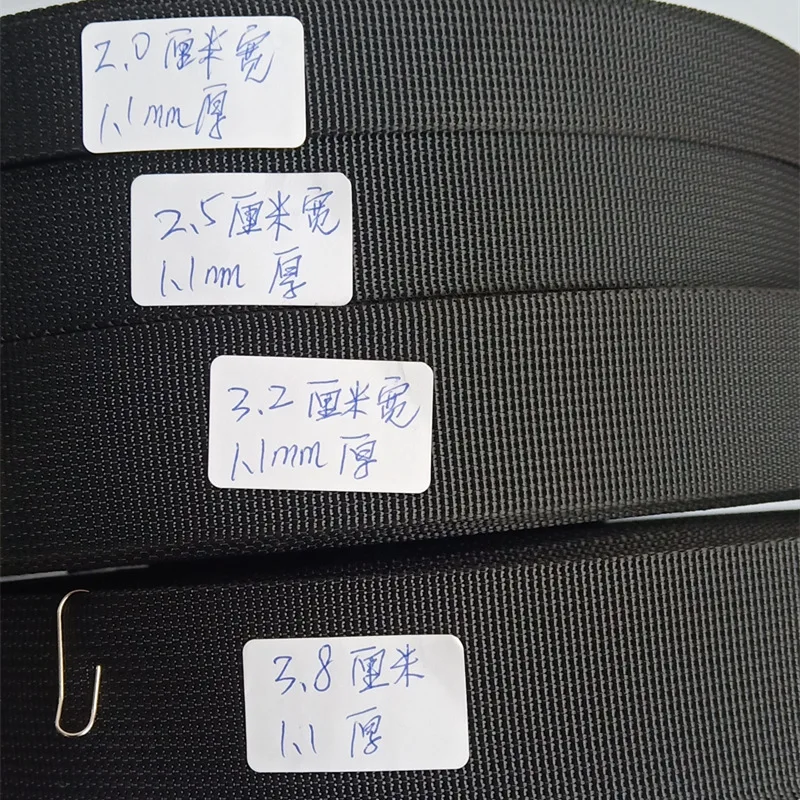 2.0厘米宽
1.1mm厚
2.5厘米宽
1.1mm厚
3.2厘米宽
1.1mm厚
3.8厘米
1.1厚